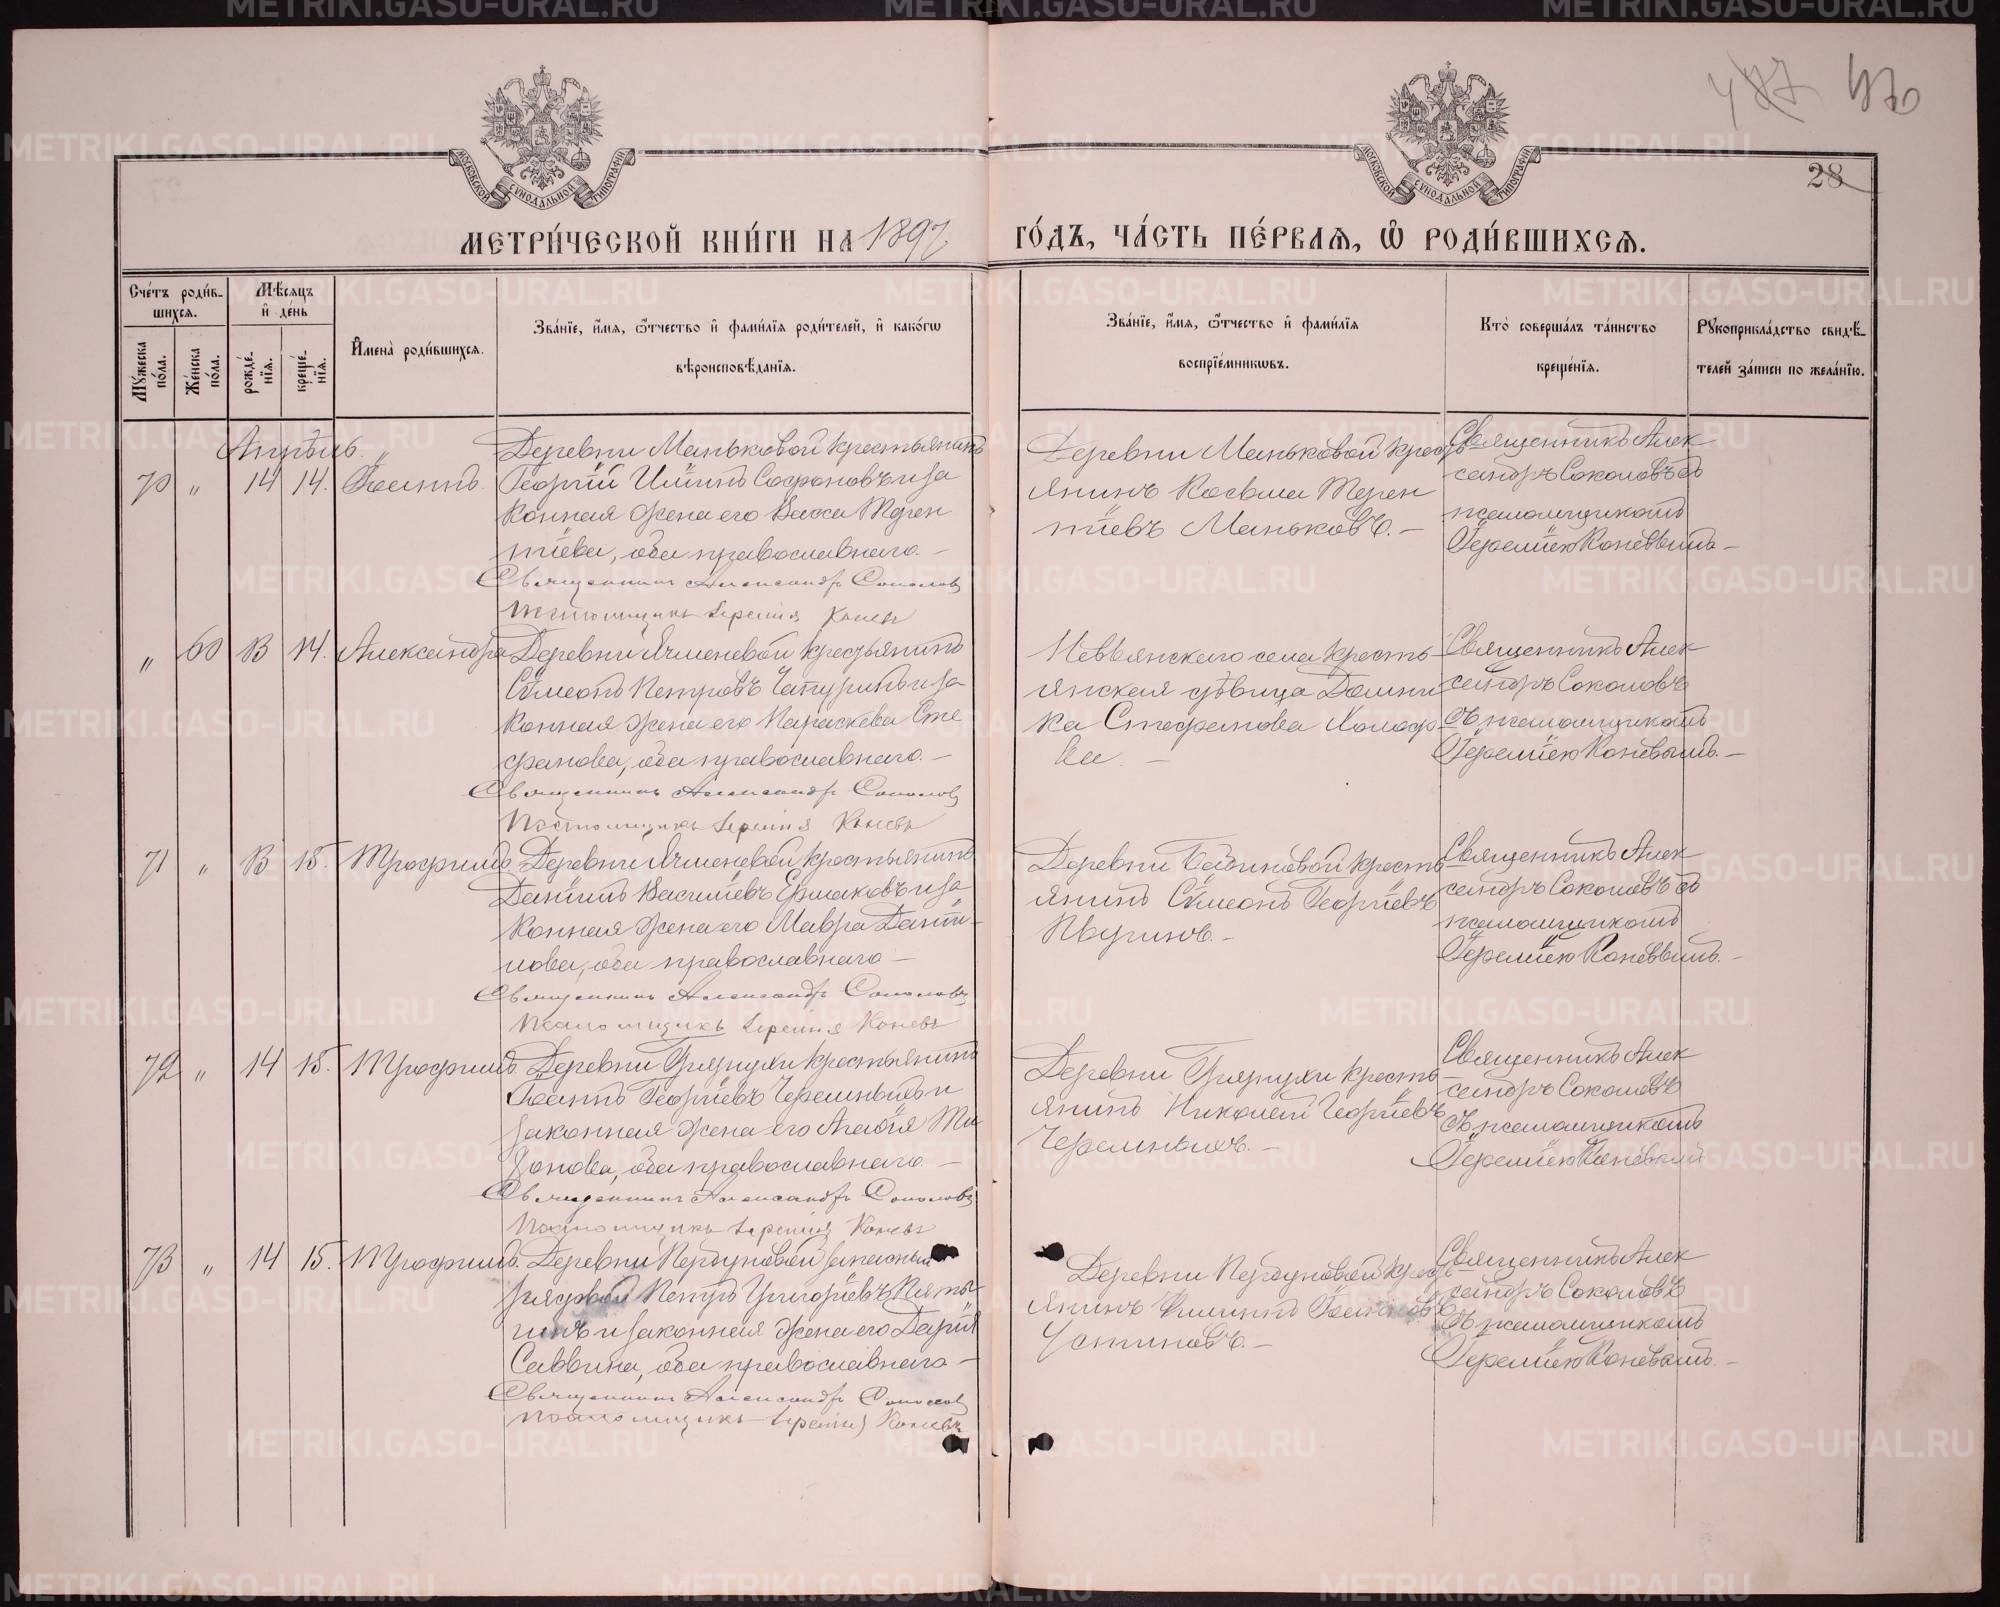 477 470
28
МОСКОВСКОЙ СУНОДАЛЬНОЙ ТИПОГРАФИИ
МОСКОВСКОЙ СУНОДАЛЬНОЙ ТИПОГРАФИИ
МЕТРИ́ЧЕСКОЙ КНИ́ГИ НА 1897 ГО́ДЪ, ЧА́СТЬ ПЕ́РВАѦ, Ѿ РОДИ́ВШИХСѦ.
Сче́тъ роди́вшихсѧ.
Мꙋ́жеска по́ла.
Же́нска по́ла.
Мѣ́сѧцъ и҆ де́нь
рожде́нїѧ.
креще́нїѧ.
И҆мена̀ роди́вшихсѧ.
Зва́нїе, и҆́мѧ, ѻ҆́тчество и҆ фами́лїѧ роди́телей, и҆ како́гѡ
вѣроисповѣ́данїѧ.
Зва́нїе, и҆́мѧ, ѻ҆́тчество и҆ фами́лїѧ
воспрїе́мникѡвъ.
Кто̀ соверша́лъ та́инство
креще́нїѧ.
Рꙋкоприкла́дство свидѣ́-
телей за́писи по жела́нїю.
Апрѣль.
70 " 14 14. Іоаннъ.
Деревни Маньковой крестьянинъ
Георгій Софроновъ и за
конная жена его Васса Терен
тіева, оба православнаго. –
Священникъ Александръ Соколовъ
Псаломщикъ Іеремія Коневъ
Деревни Маньковой кресть
янинъ Косьма Терен
тіевъ Маньковъ. –
Священникъ Алек
сандръ Соколовъ съ
псаломщикомъ
Іереміею Коневымъ –
" 60 13 14. Александра
Деревни Ячменевой крестьянинъ
Сѵмеонъ Петровъ Чапуринъ и за
конная жена его Параскева Сте
фанова, оба православнаго. –
Священникъ Александръ Соколовъ
Псаломщикъ Іеремія Коневъ
Невьянскаго села кресть
янская дѣвица Домни
ка Стефанова
Священникъ Алек
сандръ Соколовъ
съ псаломщикомъ
Іереміею Коневымъ. –
71 " 13 15. Трофимъ.
Деревни Ячменевой крестьянинъ
Даніилъ Василіевъ Ермаковъ и за
конная жена его Мавра Даніи-
лова, оба православнаго –
Священникъ Александръ Соколовъ
Псаломщикъ Іеремія Коневъ
Деревни Бабиновой кресть
янинъ Сѵмеонъ Георгіевъ
Священникъ Алек
сандръ Соколовъ съ
псаломщикомъ
Іереміею Коневымъ. –
72 " 14 15. Трофимъ.
Деревни Грязнухи крестьянинъ
Іоаннъ Георгіевъ Черемныхъ и
законная жена его Агаѳія
оба православнаго. –
Священникъ Александръ Соколовъ
Псаломщикъ Іеремія Коневъ
Деревни Грязнухи кресть
янинъ Николай Георгіевъ
Черемныхъ. –
Священникъ Алек
сандръ Соколовъ
съ псаломщикомъ
Іереміею Коневымъ
73 " 14 15. Трофимъ.
Деревни Первуновой запасный
рядовой Петръ Григоріевъ Пяты-
гинъ и законная жена его Дарія
Саввина, оба православнаго –
Священникъ Александръ Соколовъ
Псаломщикъ Іеремія Коневъ
Деревни Первуновой кресть
янинъ Филиппъ Іоанновъ
Устиновъ. –
Священникъ Алек
сандръ Соколовъ
съ псаломщикомъ
Іереміею Коневымъ. –